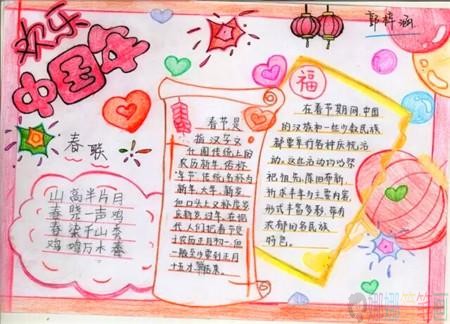 欢乐
中国年
郭梓涵
春联
山高半片月
春晓一声鸡
春染千山秀
鸡鸣万木春
春节是
指汉字文
化圈传统上的
农历新年,俗称
“年节”传统名称为
新年、大年、新岁,
但口头上又称度岁
庆新岁、过年,在现
代人们把春节定
于农历正月初一,但
一般至少要到正月
十五才算结束。
福
在春节期间,中国
的汉族和一些少数民族
都要举行各种庆祝活
动。这些活动均以祭
祀祖先、除旧布新、
祈求丰年为主要内容,
形式丰富多彩,带有
浓郁的各民族
特色。